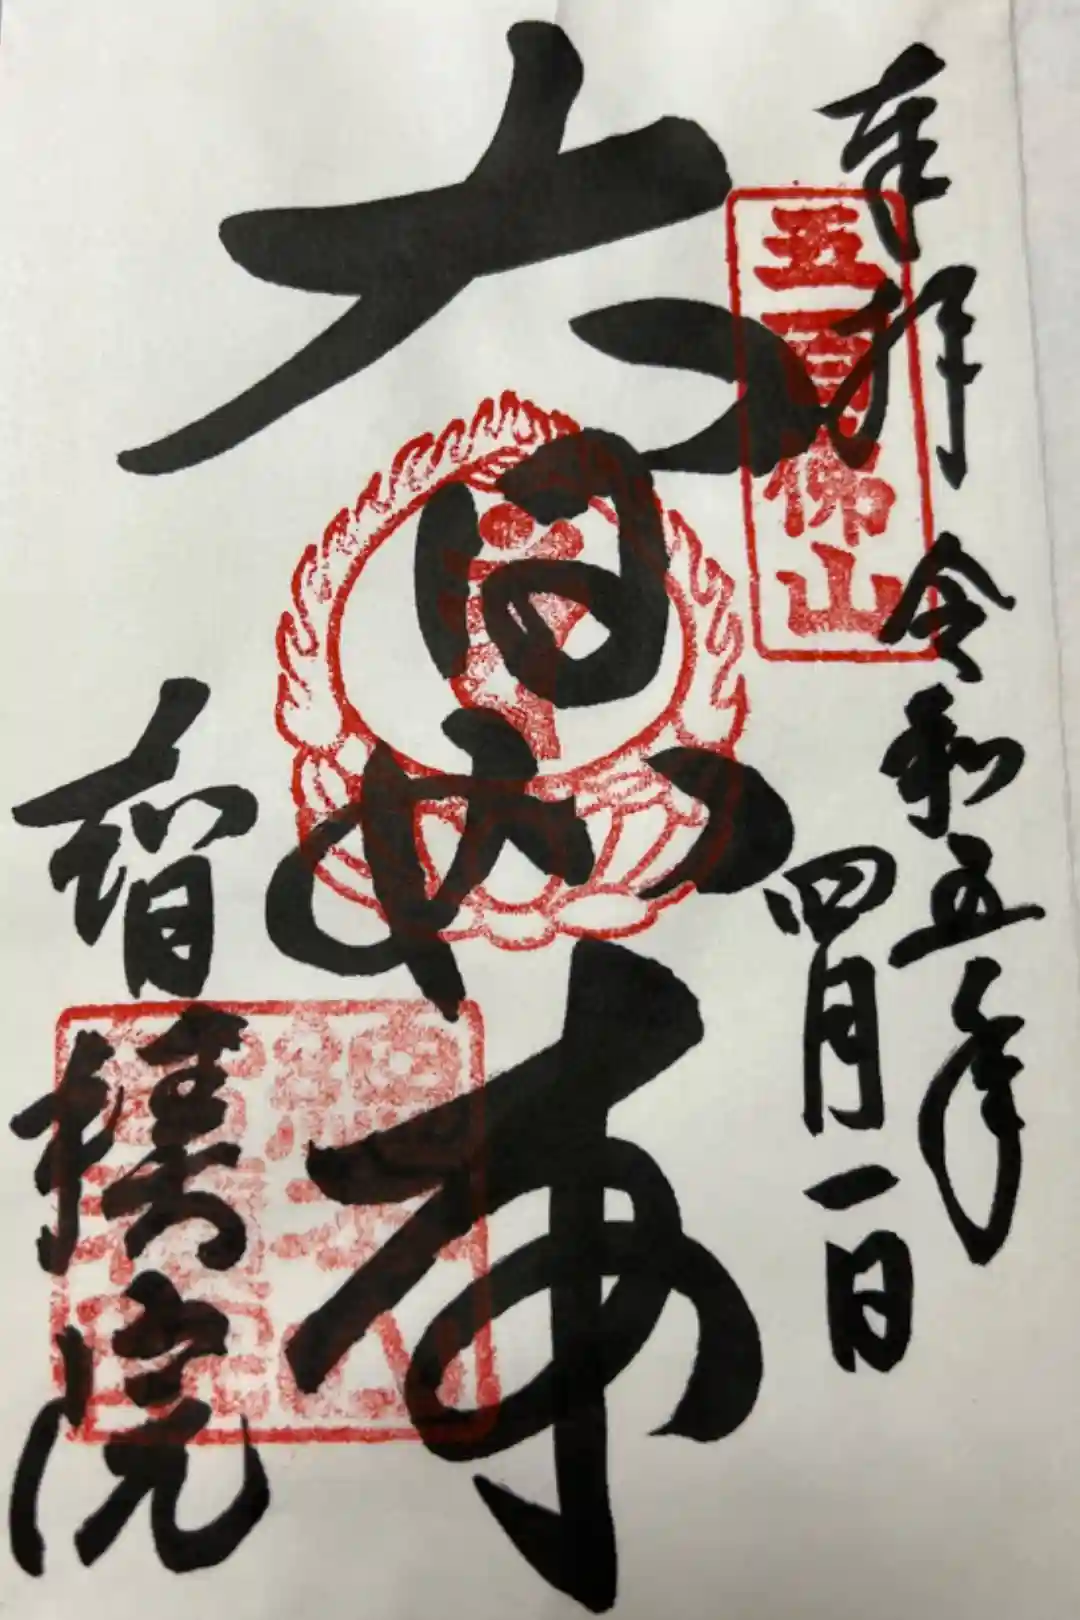 奉拝 令和五年
四月一日
五百佛山
大日如来
智積院